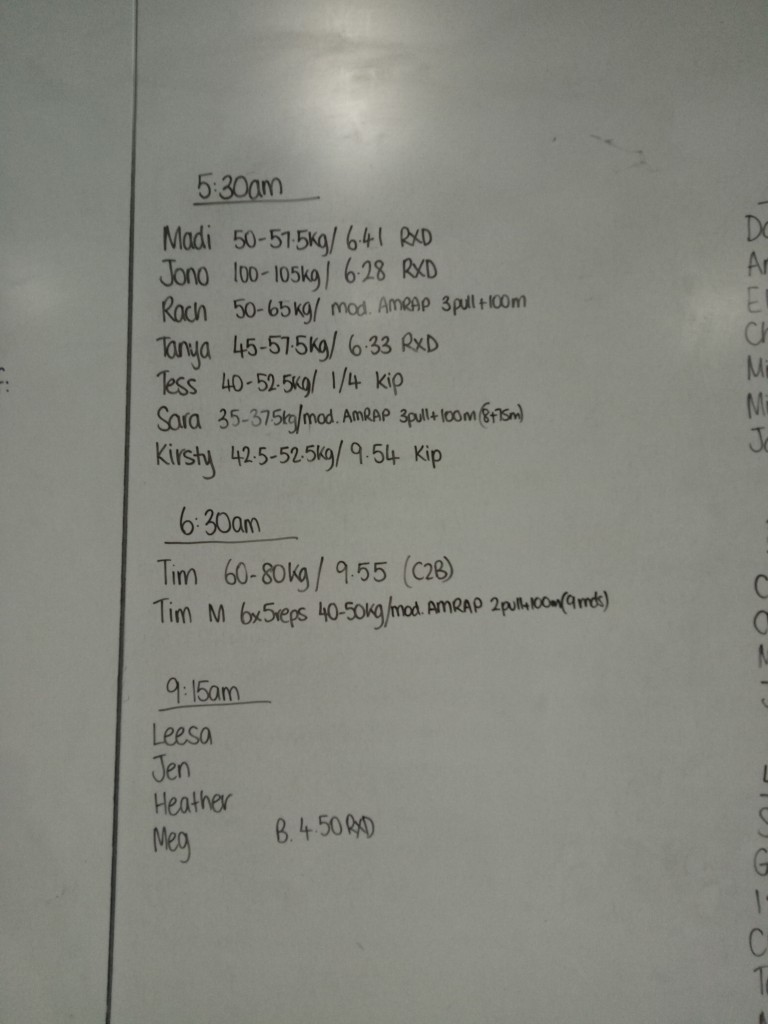 5:30am
Madi 50-57.5kg/ 6.41 RXD
Jono 100-105kg/ 6.28 RXD
Rach 50-65kg/ mod. AMRAP 3pull+100m
Tanya 45-57.5kg/ 6.33 RXD
Tess 40-52.5kg/ 1/4 Kip
Sara 35-37.5kg/mod. AMRAP 3pull+100m (8+75m)
Kirsty 42.5-52.5kg/ 9.54 Kip
6:30am
Tim 60-80kg/ 9.55 (C2B)
Tim M 6x5reps 40-50kg/mod. AMRAP 2pull+100m(9rnds)
9:15am
Leesa
Jen
Heather
Meg B. 4.50 RXD